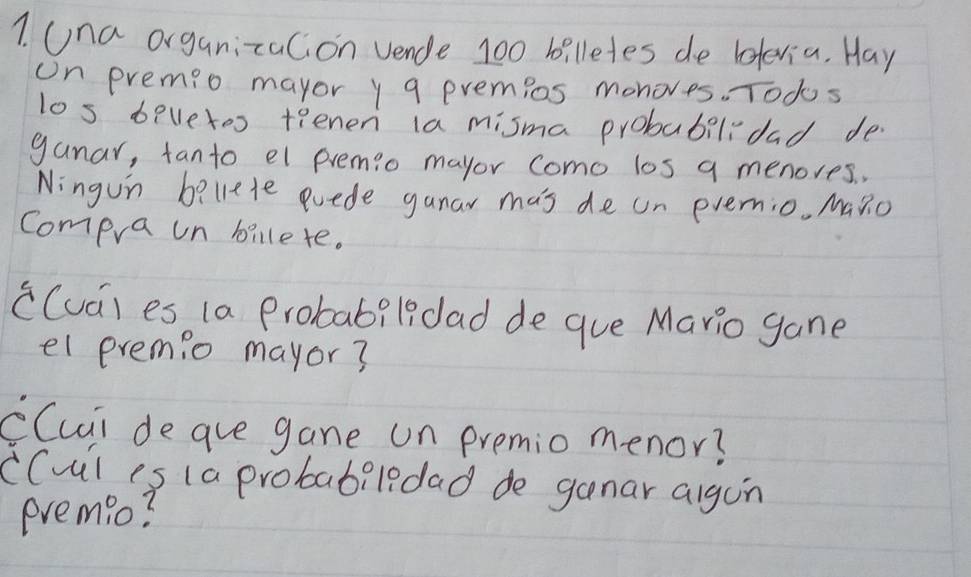 1. Una organización vende 100 billetes de lotería. Hay
un premio mayor y 9 premios monores. Todos
los billetes tienen la misma probabilidad de
ganar, tanto el premio mayor como los 9 menores.
Ningún billete puede ganar más de un premio. Mario
Compra un billete.
¿Cuál es la probabilidad de que Mario gane
el premio mayor?
¿Cuál de que gane un premio menor?
¿Cuál es la probabilidad de ganar algún
premio?